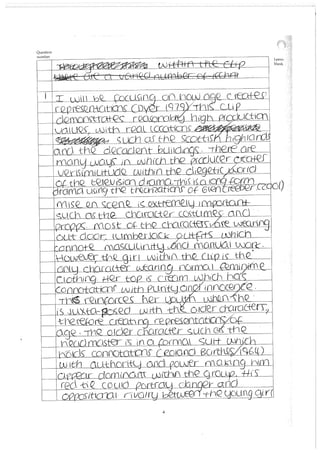 Question number
Leave blank
within the clip
there are a varied number of
1 I will be focusing on how age creates
representations (Dyer 1979) This clip
demonstrates reasonably high production
values, with real locations
such as the Scottish highlands
and the decadent buildings. There are
many ways in which the producer creates
verisimilitude within the diegetic world
of the television drama. This is a long form
drama using the theorations of Glen Creeber (2001)
mise en scene is extremely important
such as the character costumes and
propps. most of the characters are wearing
out door, lumberjack outfits which
connote masculinity and manual work.
However the girl within the clip is the
only character wearing normal feminime
clothing. Her top is cream which has
connotations with purity and innocence.
This reinforces her youth when she
is juxtaposed with the older characters,
therefore creating representations of
age. The older character such as the
headmaster is in a formal suit which
holds connotations (Roland Barthes/1964)
with authority and power making him
appear dominant within the group. His
red tie could portray danger and
oppositional rivalry between the young girl